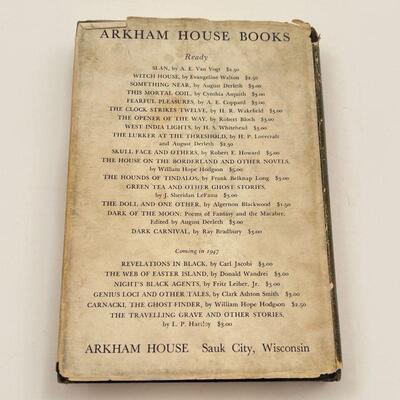 ARKHAM HOUSE BOOKS
Ready
SLAN, by A. E. Van Vogt $2.50
WITCH HOUSE, by Evangeline Walton $2.50
SOMETHING NEAR, by August Derleth $3.00
THIS MORTAL COIL, by Cynthia Asquith $3.00
FEARFUL PLEASURES, by A. E. Coppard $3.00
THE CLOCK STRIKES TWELVE, by H. R. Wakefield $3.00
THE OPENER OF THE WAY, by Robert Bloch $3.00
WEST INDIA LIGHTS, by H. S. Whitehead $3.00
THE LURKER AT THE THRESHOLD, by H. P. Lovecraft
and August Derleth $2.50
SKULL FACE AND OTHERS, by Robert E. Howard $5.00
THE HOUSE ON THE BORDERLAND AND OTHER NOVELS,
by William Hope Hodgson $5.00
THE HOUNDS OF TINDALOS, by Frank Belknap Long $3.00
GREEN TEA AND OTHER GHOST STORIES,
by J. Sheridan LeFanu $3.00
THE DOLL AND ONE OTHER, by Algernon Blackwood $1.50
DARK OF THE MOON: Poems of Fantasy and the Macabre,
Edited by August Derleth $3.00
DARK CARNIVAL, by Ray Bradbury $3.00
Coming in 1947
REVELATIONS IN BLACK, by Carl Jacobi $3.00
THE WEB OF EASTER ISLAND, by Donald Wandrei $3.00
NIGHT'S BLACK AGENTS, by Fritz Leiber, Jr. $3.00
GENIUS LOCI AND OTHER TALES, by Clark Ashton Smith $3.00
CARNACKI, THE GHOST-FINDER, by William Hope Hodgson $2.50
THE TRAVELLING GRAVE AND OTHER STORIES,
by L. P. Hartley $3.00
ARKHAM HOUSE Sauk City, Wisconsin